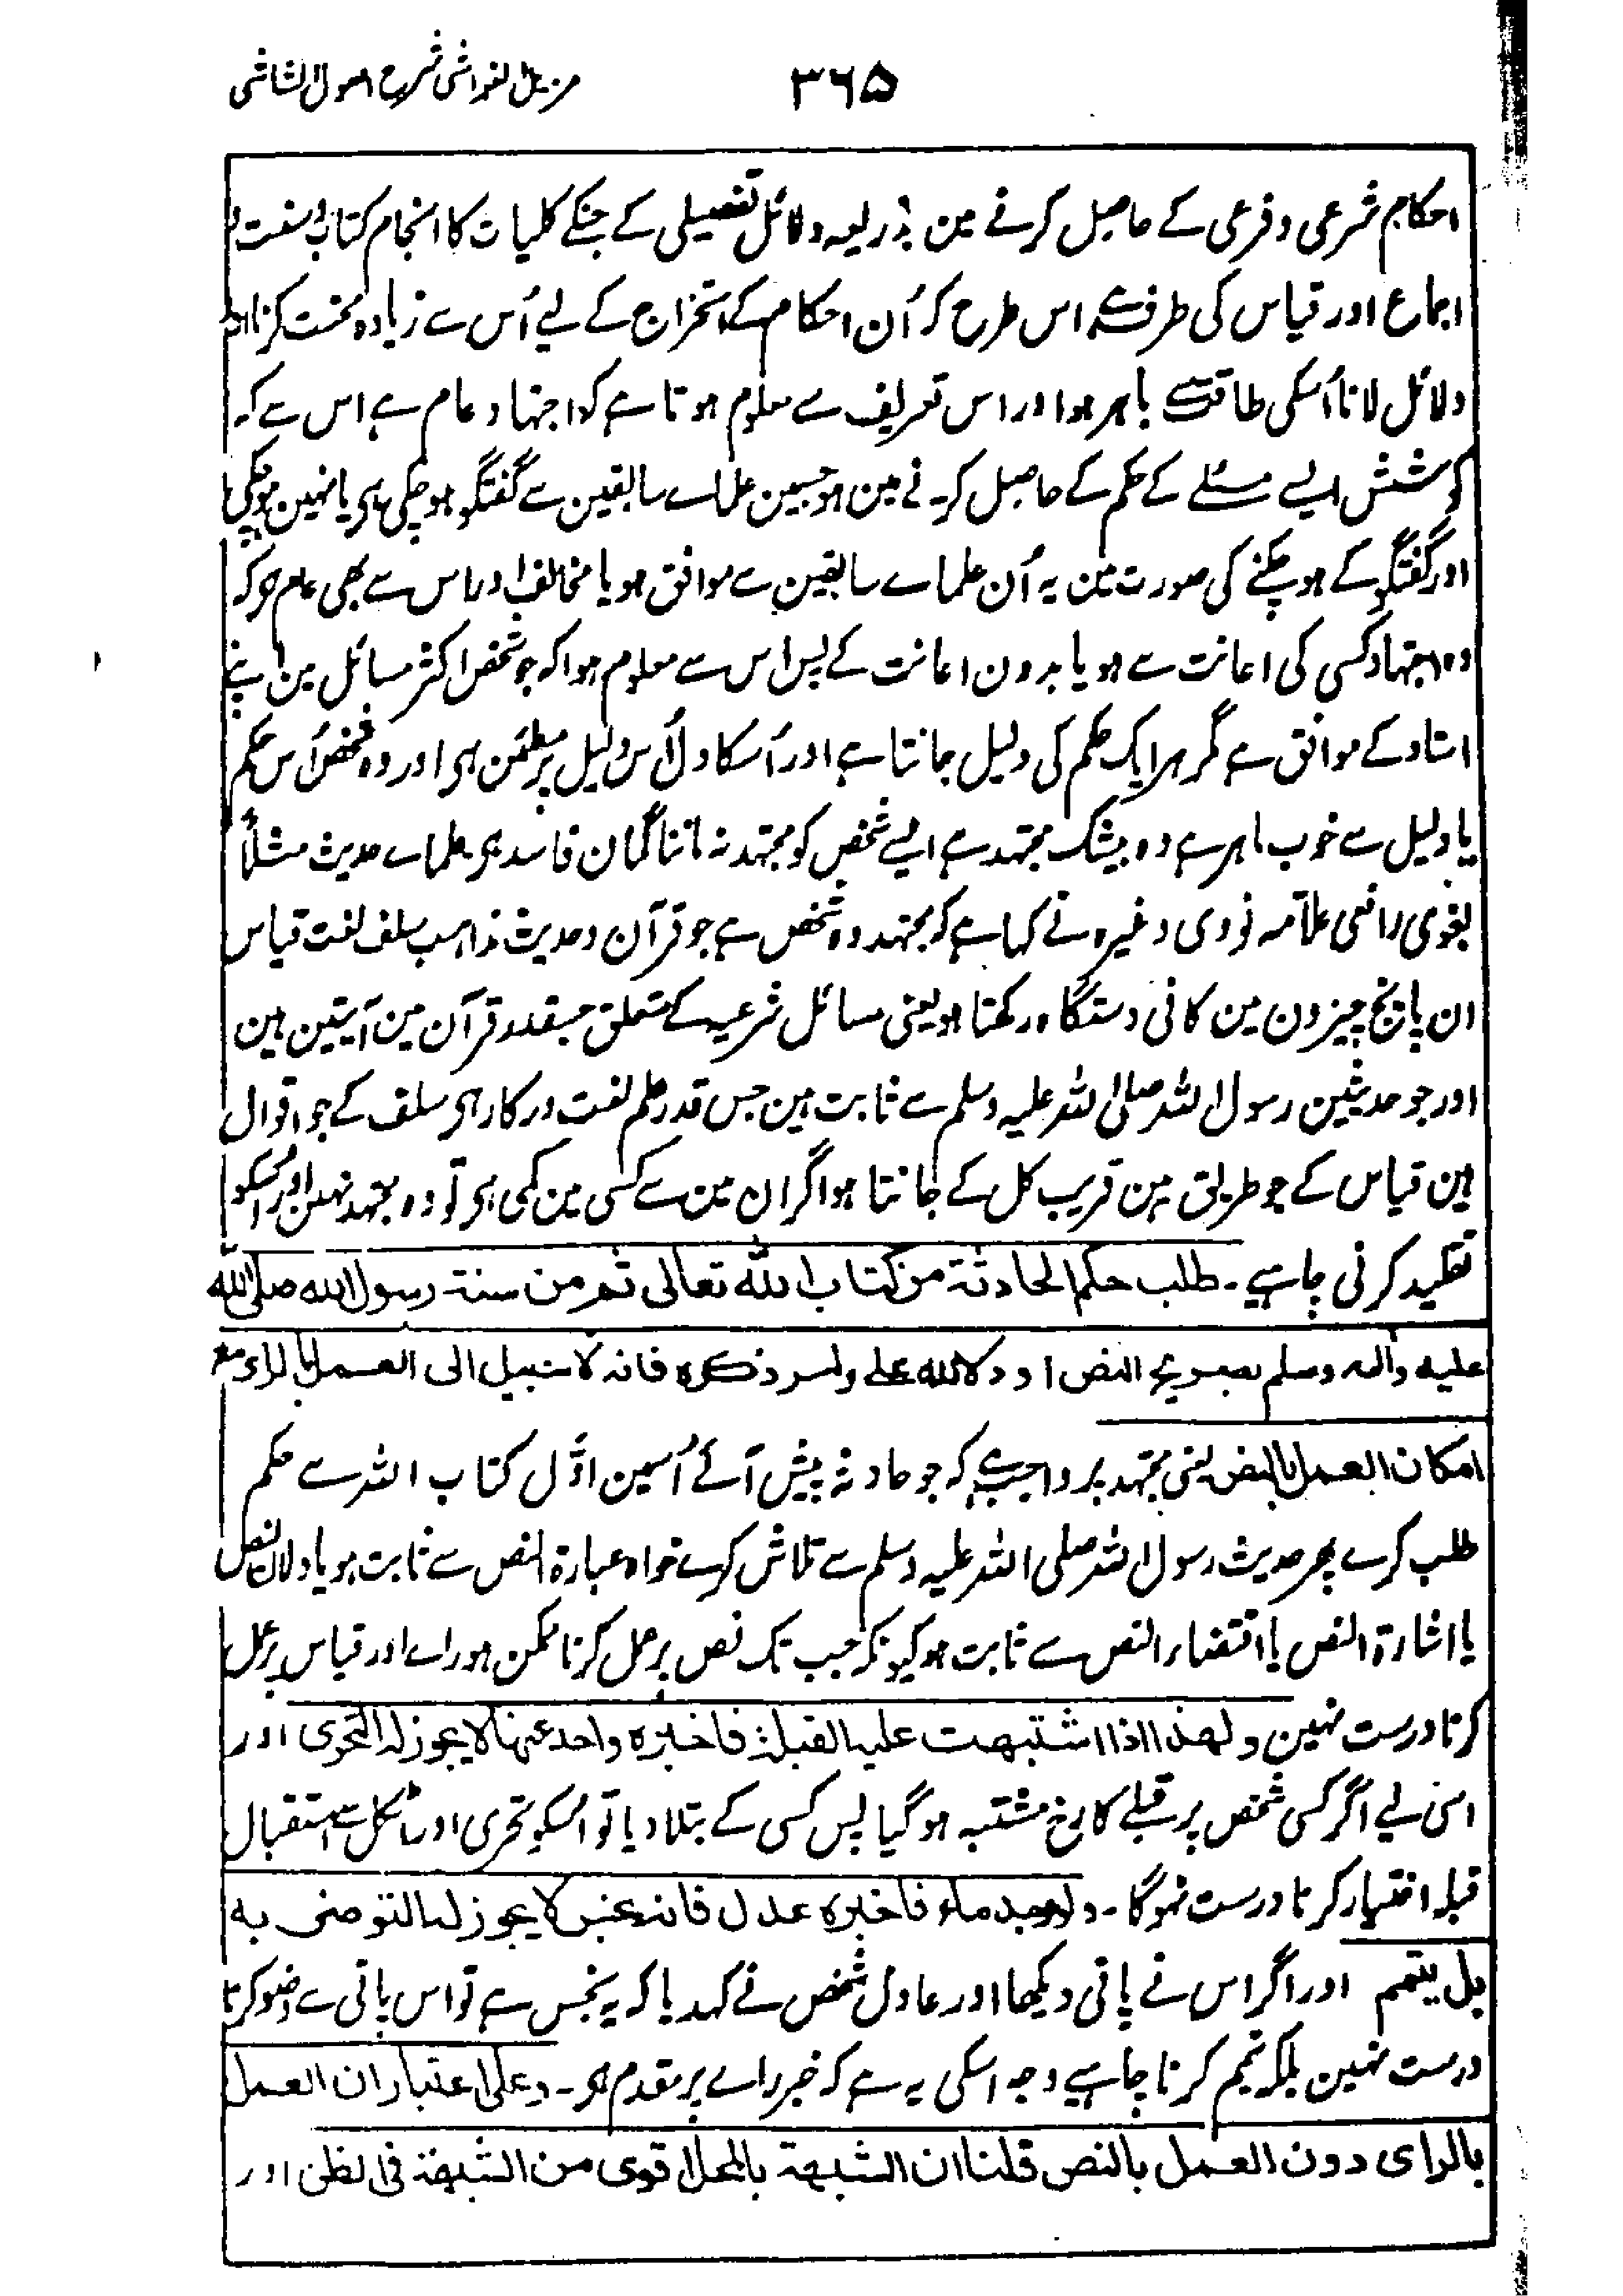 ۳۶۵ مزیل الغواشی شرح اصول الشاشی
احکام شرعی و فرعی کے حاصل کرنے مین بذریعہ دلائل تفصیلی کے جنکے کلیات کا انجام کتاب و سنت و
اجماع اور قیاس کی طرف ہے اس طرح کہ اُن احکام کے استخراج کے لیے اُس سے زیادہ محنت کرنا اور
دلائل لانا اُسکی طاقت سے باہر ہو اور اس تعریف سے معلوم ہوتا ہے کہ اجتہاد عام ہے اس سے کہ
کوشش ایسے مسئلے کے حکم کے حاصل کرنے مین ہو جسمین علماے سابقین سے گفتگو ہو چکی ہی یا نہین ہو چکی
اور گفتگو کے ہو چکنے کی صورت مین یہ اُن علماے سابقین سے موافق ہو یا مخالف اور اس سے بھی عام ہو کہ
وہ اجتہاد کسی کی اعانت سے ہو یا بدون اعانت کے پس اس سے معلوم ہوا کہ جو شخص اکثر مسائل مین اپنے
استاد کے موافق ہے مگر ہر ایک حکم کی دلیل جانتا ہے اور اُسکا دل اُس دلیل پر مطمئن ہی اور وہ شخص اُس حکم
یا دلیل سے خوب ماہر ہے وہ بیشک مجتہد ہے ایسے شخص کو مجتہد نہ ماننا گمان فاسد ہی علماے حدیث مثلاً
بغوی رافعی علّامہ نووی وغیرہ نے کہا ہے کہ مجتہد وہ شخص ہے جو قرآن و حدیث مذاہب سلف لغت قیاس
ان پانچ چیزون مین کافی دستگاہ رکھتا ہو یعنی مسائل شرعیہ کے متعلق جسقدر قرآن مین آیتین ہین
اور جو حدیثین رسول اللہ صلی اللہ علیہ وسلم سے ثابت ہین جس قدر علم لغت درکار ہی سلف کے جو اقوال
ہین قیاس کے جو طریق ہین قریب کل کے جانتا ہو اگر ان مین سے کسی مین کمی ہی تو وہ مجتہد نہین اور اُسکو
تقلید کرنی چاہیے۔ طلب حکم الحادثة من کتاب اللہ تعالی ثم من سنة رسول اللہ صلی اللہ
علیہ وآلہ وسلم بصریح النص او دلالتہ علی ما مر ذکرہ فانہ لا سبیل الی العمل بالرای مع
امکان العمل بالنص یعنی مجتہد پر واجب ہے کہ جو حادثہ پیش آئے اُسمین اوّل کتاب اللہ سے حکم
طلب کرے پھر حدیث رسول اللہ صلی اللہ علیہ وسلم سے تلاش کرے خواہ عبارة النص سے ثابت ہو یا دلالة النص
یا اشارة النص یا اقتضاء النص سے ثابت ہو کیونکہ جب تک نص پر عمل کرنا ممکن ہو راے اور قیاس پر عمل
کرنا درست نہین ولھذا اذا اشتبھت علیہ القبلة فاخبرہ واحد عنھا لا یجوز لہ التحری اور
اسی لیے اگر کسی شخص پر قبلے کا رخ مشتبہ ہو گیا پس کسی کے بتلا دیا تو اُسکو تحری اور اٹکل سے استقبال
قبلہ اختیار کرنا درست نہوگا۔ ولو وجد ماء فاخبرہ عدل فانہ نجس لا یجوز لہ التوضی بہ
بل یتیمم اور اگر اس نے پانی دیکھا اور عادل شخص نے کہدیا کہ یہ نجس ہے تو اس پانی سے وضو کرنا
درست نہین بلکہ تیمم کرنا چاہیے وجہ اسکی یہ ہے کہ خبر راے پر مقدم ہی۔ وعلی اعتبار ان العمل
بالرای دون العمل بالنص قلنا ان الشبھة بالمحل اقوی من الشبھة فی الظن اور